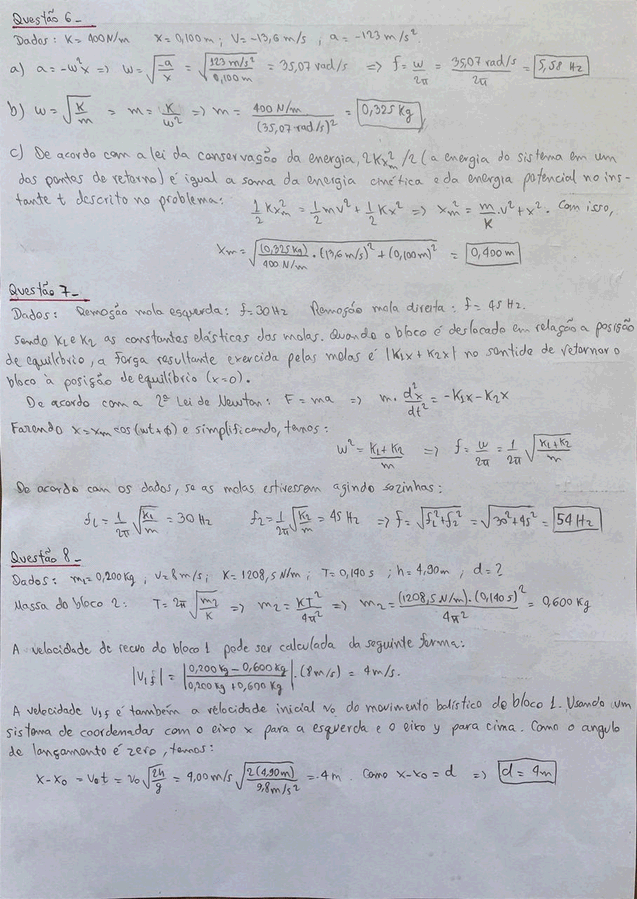 Questão 6_
Dados: K = 400 N/m   X = 0,100 m ; V = -13,6 m/s ; a = -123 m/s²
a) a = -w²x => w = √(-a/x) = √(123 m/s² / 0,100 m) = 35,07 rad/s => f = w/2π = 35,07 rad/s / 2π = 5,58 Hz
b) w = √(K/m) = m = K/w² => m = 400 N/m / (35,07 rad/s)² = 0,325 Kg
c) De acordo com a lei da conservação da energia, 2Kx²m/2 (a energia do sistema em um
dos pontos de retorno) é igual a soma da energia cinética e da energia potencial no ins-
tante t descrito no problema: 1/2 Kx²m = 1/2 mv² + 1/2 Kx² => x²m = m/K . v² + x². Com isso,
Xm = √((0,325 Kg)/400 N/m . (13,6 m/s)² + (0,100 m)²) = 0,400 m
Questão 7_
Dados: Remoção mola esquerda: f = 30 Hz   Remoção mola direita: f = 45 Hz.
sendo K1 e K2 as constantes elásticas das molas. Quando o bloco é deslocado em relação a posição
de equilíbrio, a força resultante exercida pelas molas é |K1x + K2x| no sentido de retornar o
bloco à posição de equilíbrio (x=0).
De acordo com a 2ª Lei de Newton: F = ma => m. d²x/dt² = -K1x - K2x
Fazendo x = xm cos(wt + ϕ) e simplificando, temos:
w² = K1 + K2 / m => f = w/2π = 1/2π √(K1 + K2 / m)
De acordo com os dados, se as molas estivessem agindo sozinhas:
f1 = 1/2π √(K1/m) = 30 Hz   f2 = 1/2π √(K2/m) = 45 Hz => f = √(f1² + f2²) = √(30² + 45²) = 54 Hz
Questão 8_
Dados: m1 = 0,200 Kg , v = 8 m/s ; K = 1208,5 N/m ; T = 0,140 s ; h = 4,90 m , d = ?
Massa do bloco 2: T = 2π √(m2/K) => m2 = KT²/4π² => m2 = (1208,5 N/m).(0,140 s)² / 4π² = 0,600 Kg
A velocidade de recuo do bloco 1 pode ser calculada da seguinte forma:
|V1f| = |0,200 Kg - 0,600 Kg / 0,200 Kg + 0,600 Kg| . (8 m/s) = 4 m/s.
A velocidade V1f é também a velocidade inicial v0 do movimento balístico do bloco 1. Usando um
sistema de coordenadas com o eixo x para a esquerda e o eixo y para cima. Como o angulo
de lançamento é zero, temos:
X - X0 = v0t = v0 √(2h/g) = 4,00 m/s √(2(4,90 m) / 9,8 m/s²) = 4 m . Como x - x0 = d => d = 4 m